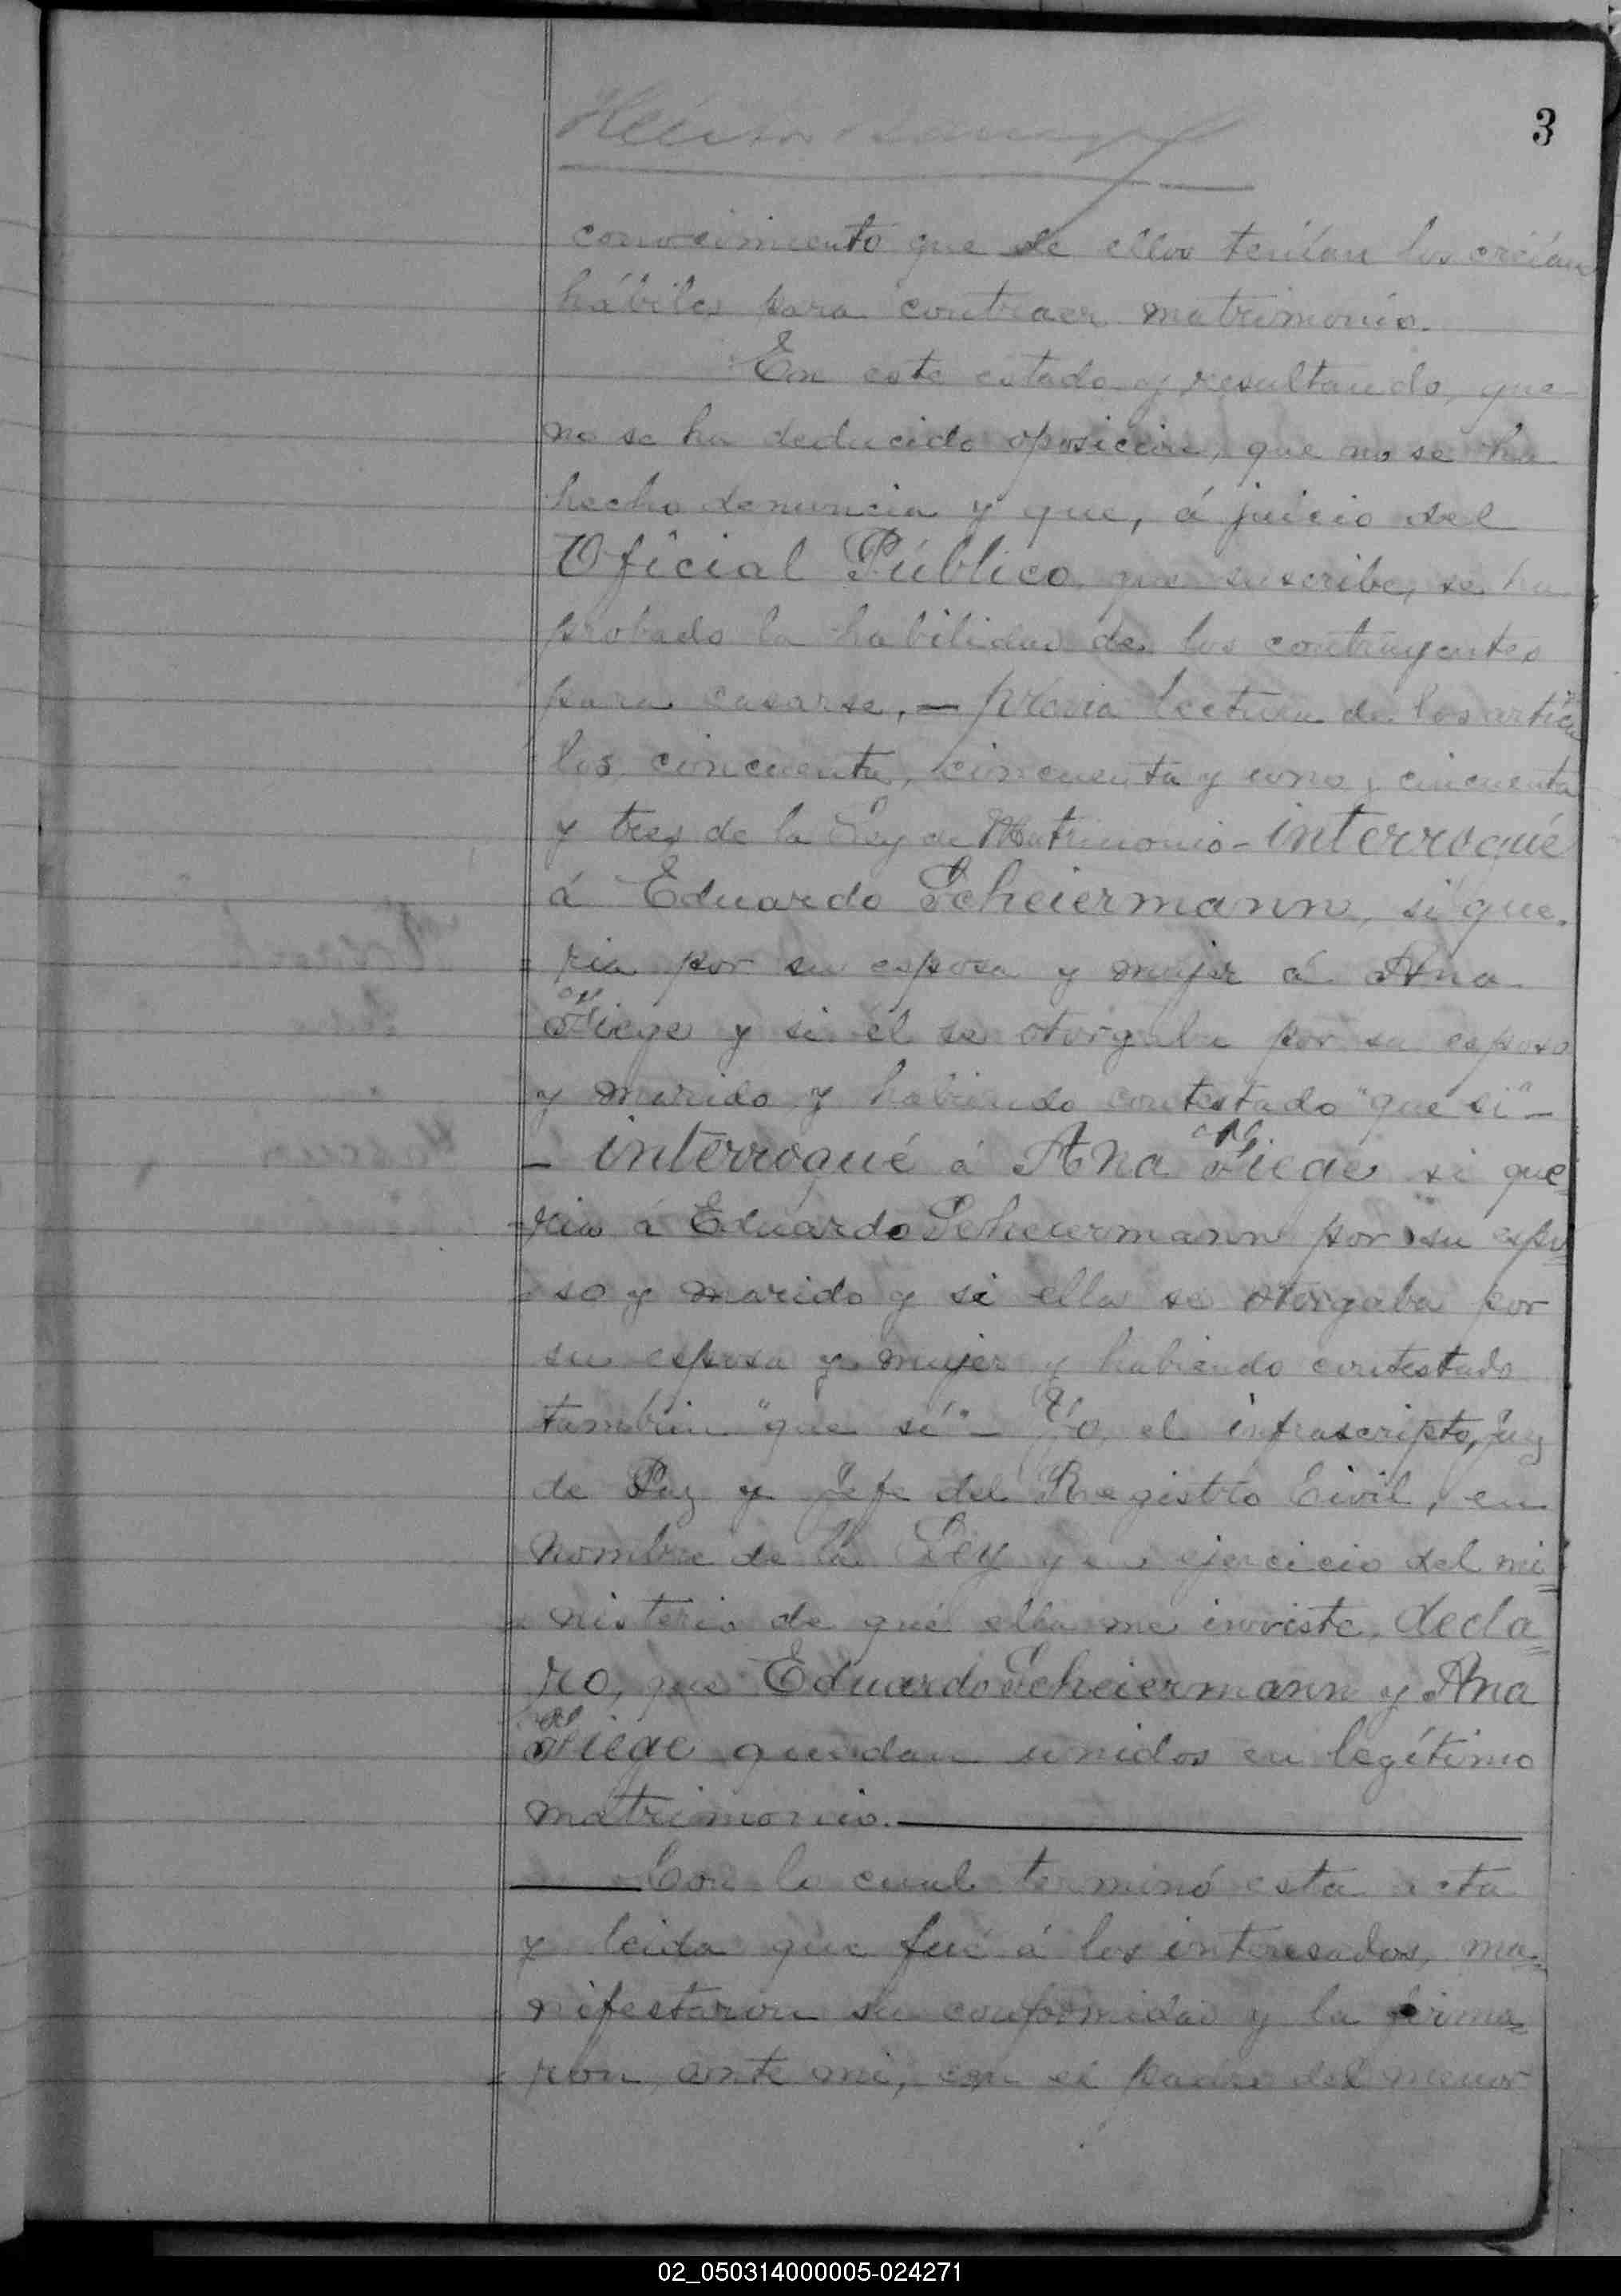 3
conocimiento que de ellos tenían los creían
hábiles para contraer matrimonio.
En este estado y resultando, que
no se ha deducido oposicion, que no se ha
hecho denuncia y que, á juicio del
Oficial Público que suscribe, se ha
probado la habilidad de los contrayentes
para casarse, — prévia lectura de los artícu
los cincuenta, cincuenta y uno y cincuenta
y tres de la Ley de Matrimonio - interrogué
á Eduardo Scheiermann, si que-
ria por su esposa y mujer á Ana
Fiege y si él se otorgaba por su esposo
y marido y habiendo contestado "que si" —
— interrogué á Ana Fiege si que-
ria á Eduardo Scheiermann por su espo-
so y marido y si ella se otorgaba por
su esposa y mujer y habiendo contestado
tambien "que sí" - Yo, el infrascripto, Juez
de Paz y Jefe del Registro Civil, en
nombre de la Ley y en ejercicio del mi=
nisterio de que ella me inviste, decla=
ro, que Eduardo Scheiermann y Ana
Fiege quedan unidos en legítimo
matrimonio. —
— Con lo cual terminó esta acta
y leida que fué á los interesados, ma=
nifestaron su conformidad y la firma=
ron ante mi, con el padre del menor
02_050314000005-024271